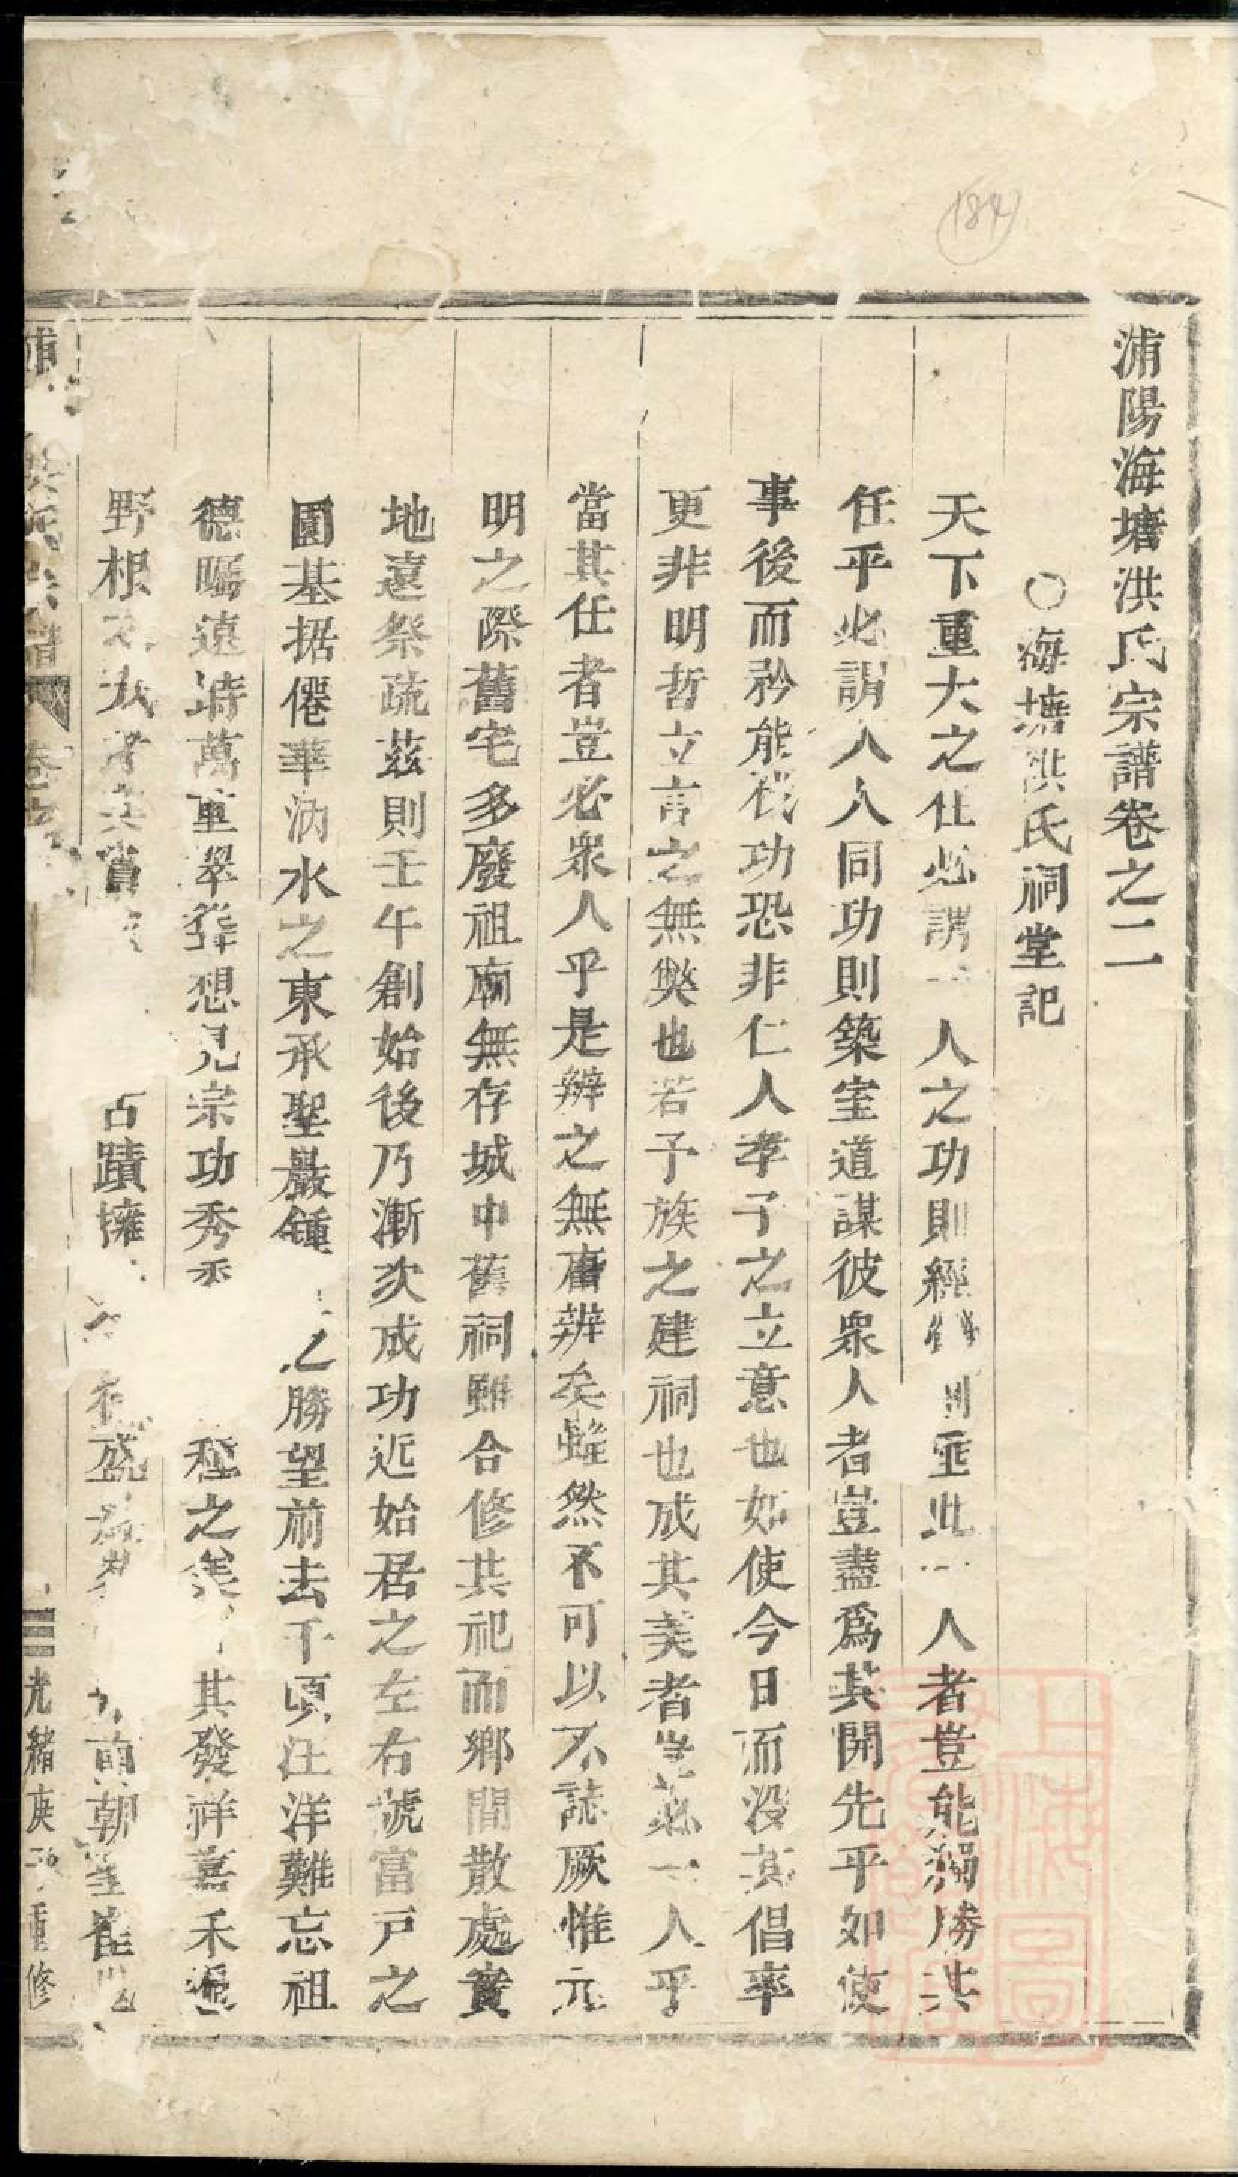 浦陽海塘洪氏宗譜卷之二
○海塘洪氏祠堂記
天下重大之任必謂一人之功則經 垂此一人者豈能獨勝其
任乎必謂人人同功則築室道謀彼衆人者豈盡爲其開先乎如使
事後而矜能伐功恐非仁人孝子之立意也如使今日而没其倡率
更非明哲立言之無獘也若予族之建祠也成其美者豈必一人乎
當其任者豈必衆人乎是辨之無庸辨矣雖然不可以不誌厥惟元
明之際舊宅多廢祖廟無存城中舊祠雖合修其祀而鄉間散處實
地遠祭疏茲則壬午創始後乃漸次成功近始居之左右號富戸之
園基据僊華汭水之東承聖巖鍾 之勝望前去千頃汪洋難忘祖
德矚遠峙萬重翠 想見宗功秀 種之 其發祥嘉禾遍
野根 古蹟擁 盛 南朝 崔
洪氏宗譜 卷之 二 光緒庚 重修
上海圖書館藏
184